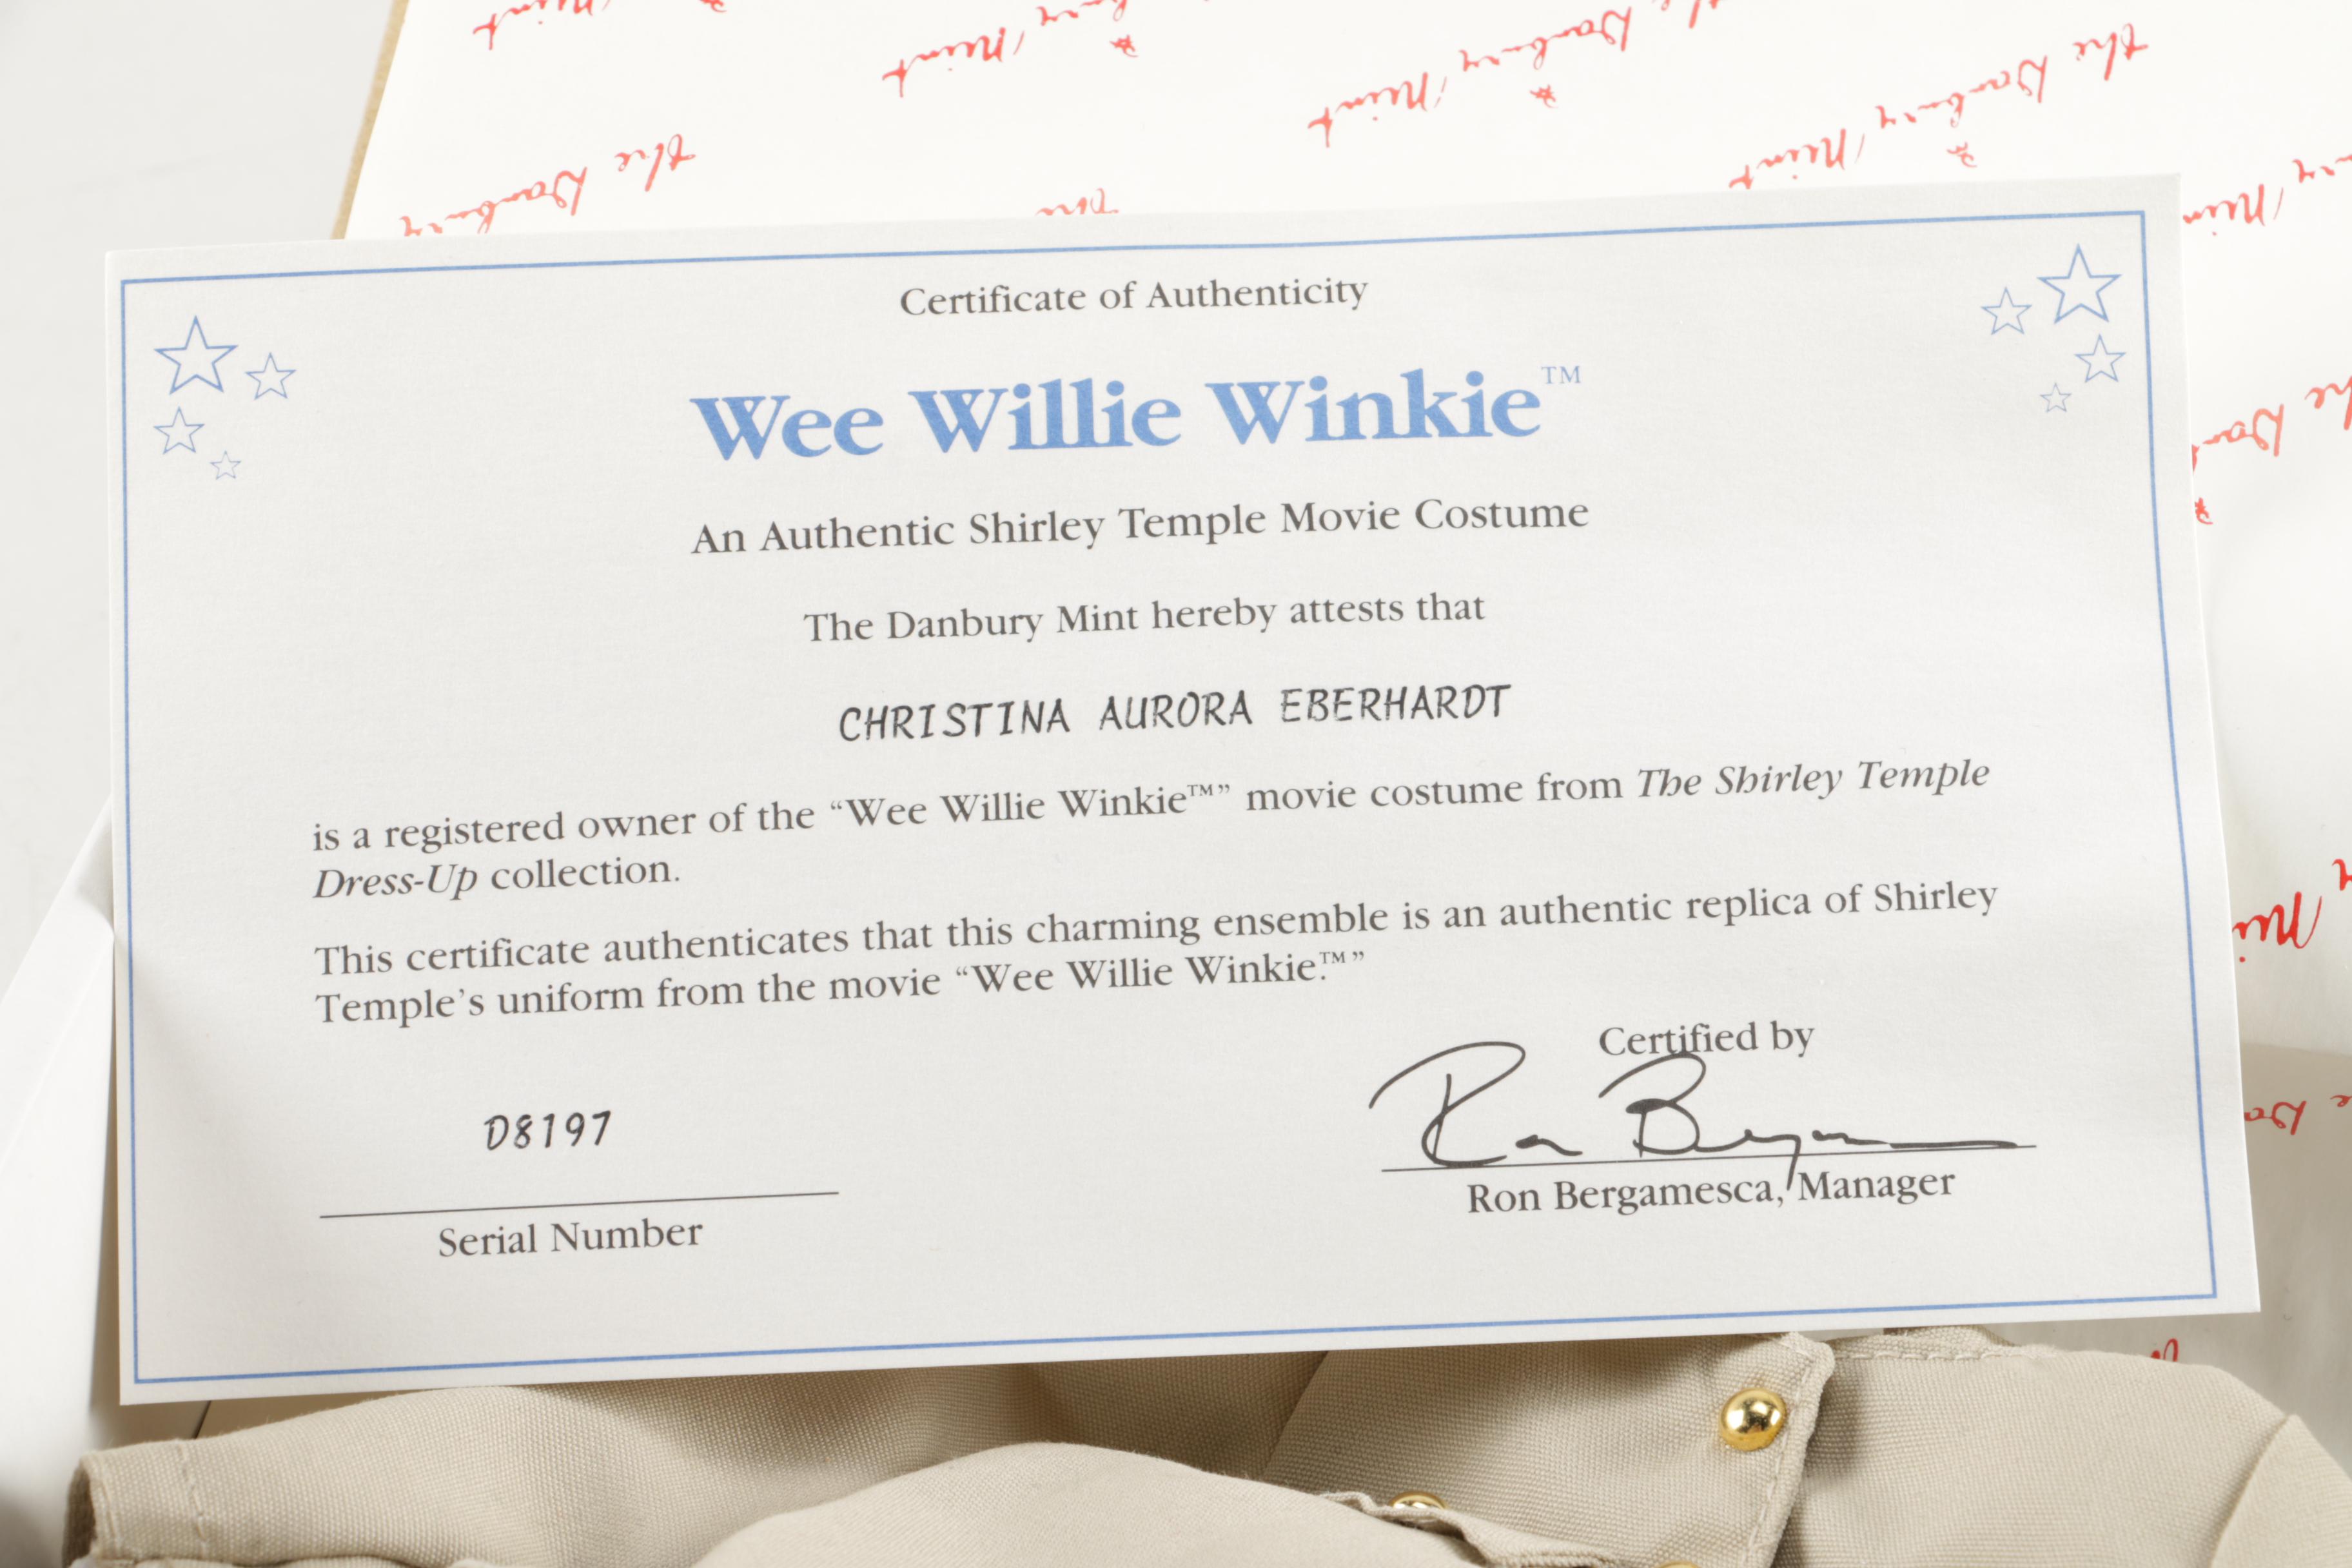 the Danbury Mint
the Danbury Mint
the Danbury
Mint
Mint
Certificate of Authenticity
Wee Willie Winkie™
An Authentic Shirley Temple Movie Costume
The Danbury Mint hereby attests that
CHRISTINA AURORA EBERHARDT
is a registered owner of the “Wee Willie Winkie™” movie costume from The Shirley Temple
Dress-Up collection.
This certificate authenticates that this charming ensemble is an authentic replica of Shirley
Temple’s uniform from the movie “Wee Willie Winkie.™”
Certified by
D8197
Serial Number
Ron Bergamesca, Manager